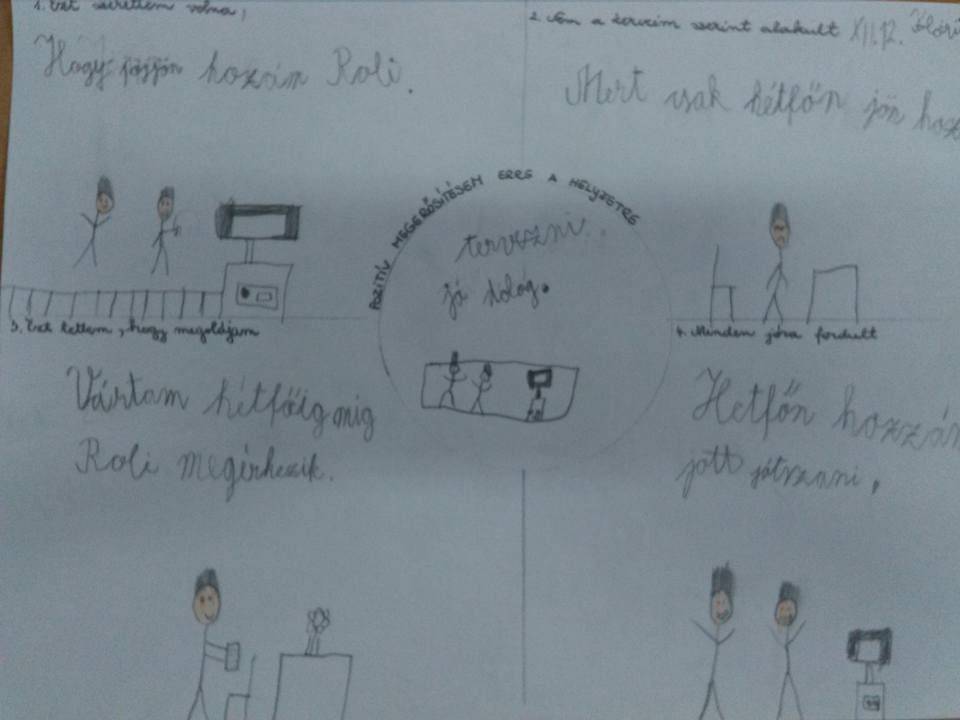 1. Ezt szerettem volna,
Hogy jöjjön hozám Roli.
2. Nem a terveim szerint alakult XII.12.
Mert csak hétfőn jön hoz
POZITÍV MEGERŐSÍTÉSEM ERRE A HELYZETRE
tervezni
jó dolog.
3. Ezt tettem, hogy megoldjam
Vártam hétfőig mig
Roli megérkezik.
4. Minden jóra fordult
Hetfőn hozzám
jött játszani,